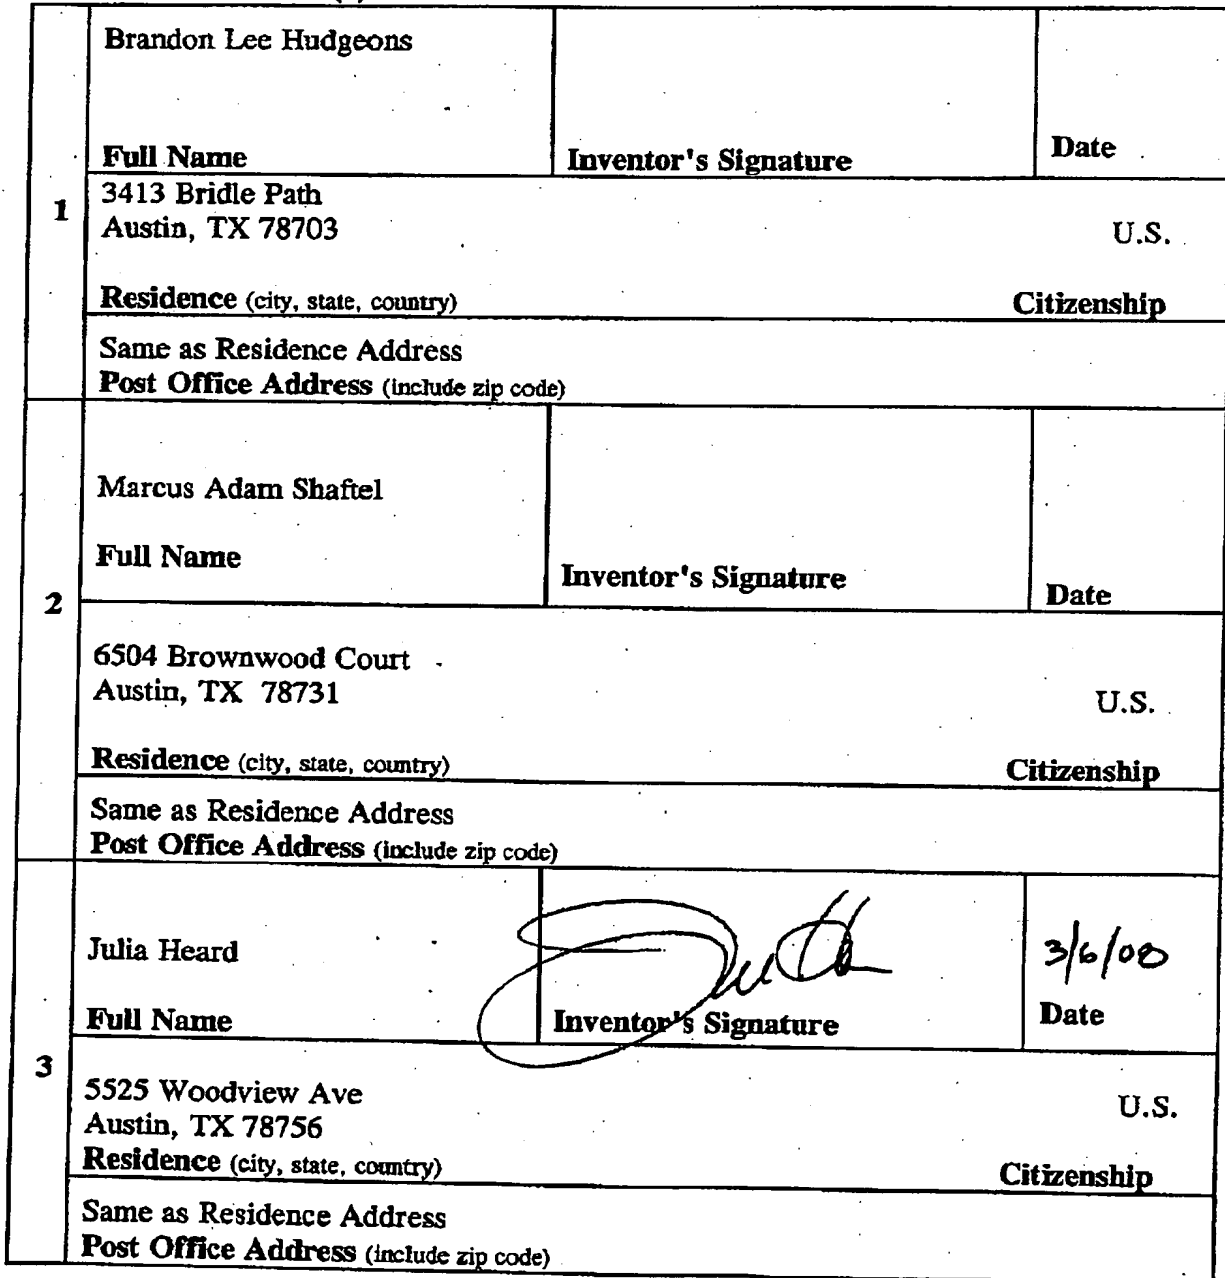 Brandon Lee Hudgeons
Full Name
Inventor's Signature
Date
1
3413 Bridle Path
Austin, TX 78703
U.S.
Residence (city, state, country)
Citizenship
Same as Residence Address
Post Office Address (include zip code)
Marcus Adam Shaftel
Full Name
Inventor's Signature
Date
2
6504 Brownwood Court
Austin, TX 78731
U.S.
Residence (city, state, country)
Citizenship
Same as Residence Address
Post Office Address (include zip code)
Julia Heard
3/6/00
Full Name
Inventor's Signature
Date
3
5525 Woodview Ave
Austin, TX 78756
U.S.
Residence (city, state, country)
Citizenship
Same as Residence Address
Post Office Address (include zip code)